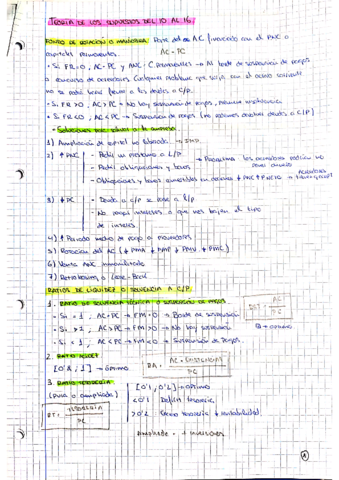 TEORIA DE LOS SUPUESTOS DEL 10 AL 16.
FONDO DE ROTACIÓN O MANIOBRA: Parte del AC financiado con el PNC o
capitales permanentes. AC - PC
- Si FR=0, AC=PC y ANC=C. permanentes → Al borde de suspensión de pagos
o concurso de acreedores. Cualquier problema que surja con el activo corriente
no se podrá hacer frente a las deudas a C/P.
- Si FR>0, AC>PC → No hay suspensión de pagos,
- Si FR<0, AC<PC → Suspensión de pagos (no podemos devolver deudas a C/P)
- Soluciones para la empresa
1) Ampliación de capital
2) ↑ PNC
- Pedir un préstamo a L/P
- Pedir obligaciones y bonos
- Obligaciones y bonos convertibles en acciones
→ Problema: los acreedores podrían no
3) ↓ PC
- Deuda a C/P se pase a L/P
- No pagar intereses o que nos bajen el tipo
de interés
4) ↑ Periodo medio de pago a proveedores
5) Rotación del AC (↓ PMA ↓ PMF ↓ PMV ↓ PMC)
6) Venta ANC inmovilizado
7) Retroleasing o Lease-Back
RATIOS DE LIQUIDEZ O SOLVENCIA A C/P
1. RATIO DE SOLVENCIA TÉCNICA O SUSPENSIÓN DE PAGOS.
- Si = 1, AC=PC → FM=0 → Borde de suspensión
- Si > 1, AC>PC → FM>0 → No hay suspensión
- Si < 1, AC<PC → FM<0 → Suspensión de pagos.
RST = AC / PC
2. RATIO ACIDEZ
[0'8, 1] → óptimo
RA = AC - EXISTENCIAS / PC
3. RATIO TESORERIA
(pura o ampliada)
RT = TESORERIA / PC
[0'1, 0'2] → óptimo
<0'1 Déficit tesorería
>0'2 Exceso tesorería ↓ rentabilidad
Ampliada = + inversiones